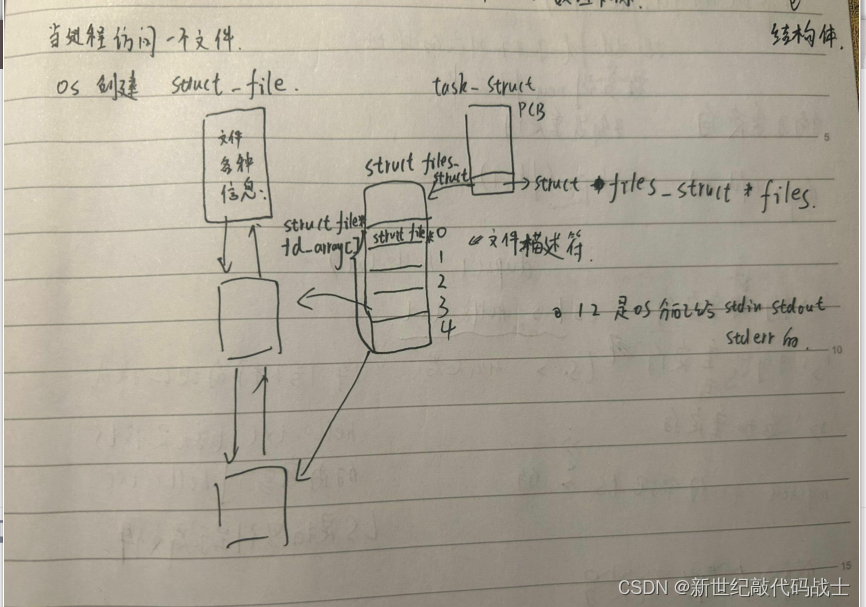 结构体.
当进程访问一个文件.
OS 创建 struct_file.
task_struct
PCB
文件
各种
信息:
struct files_
struct
struct * files_struct * files.
struct file*
fd_array[]
struct file*
0
1
2
3
4
文件描述符.
0 1 2 是OS分配给 stdin stdout
stderr 的.
5
10
15
CSDN @新世纪敲代码战士